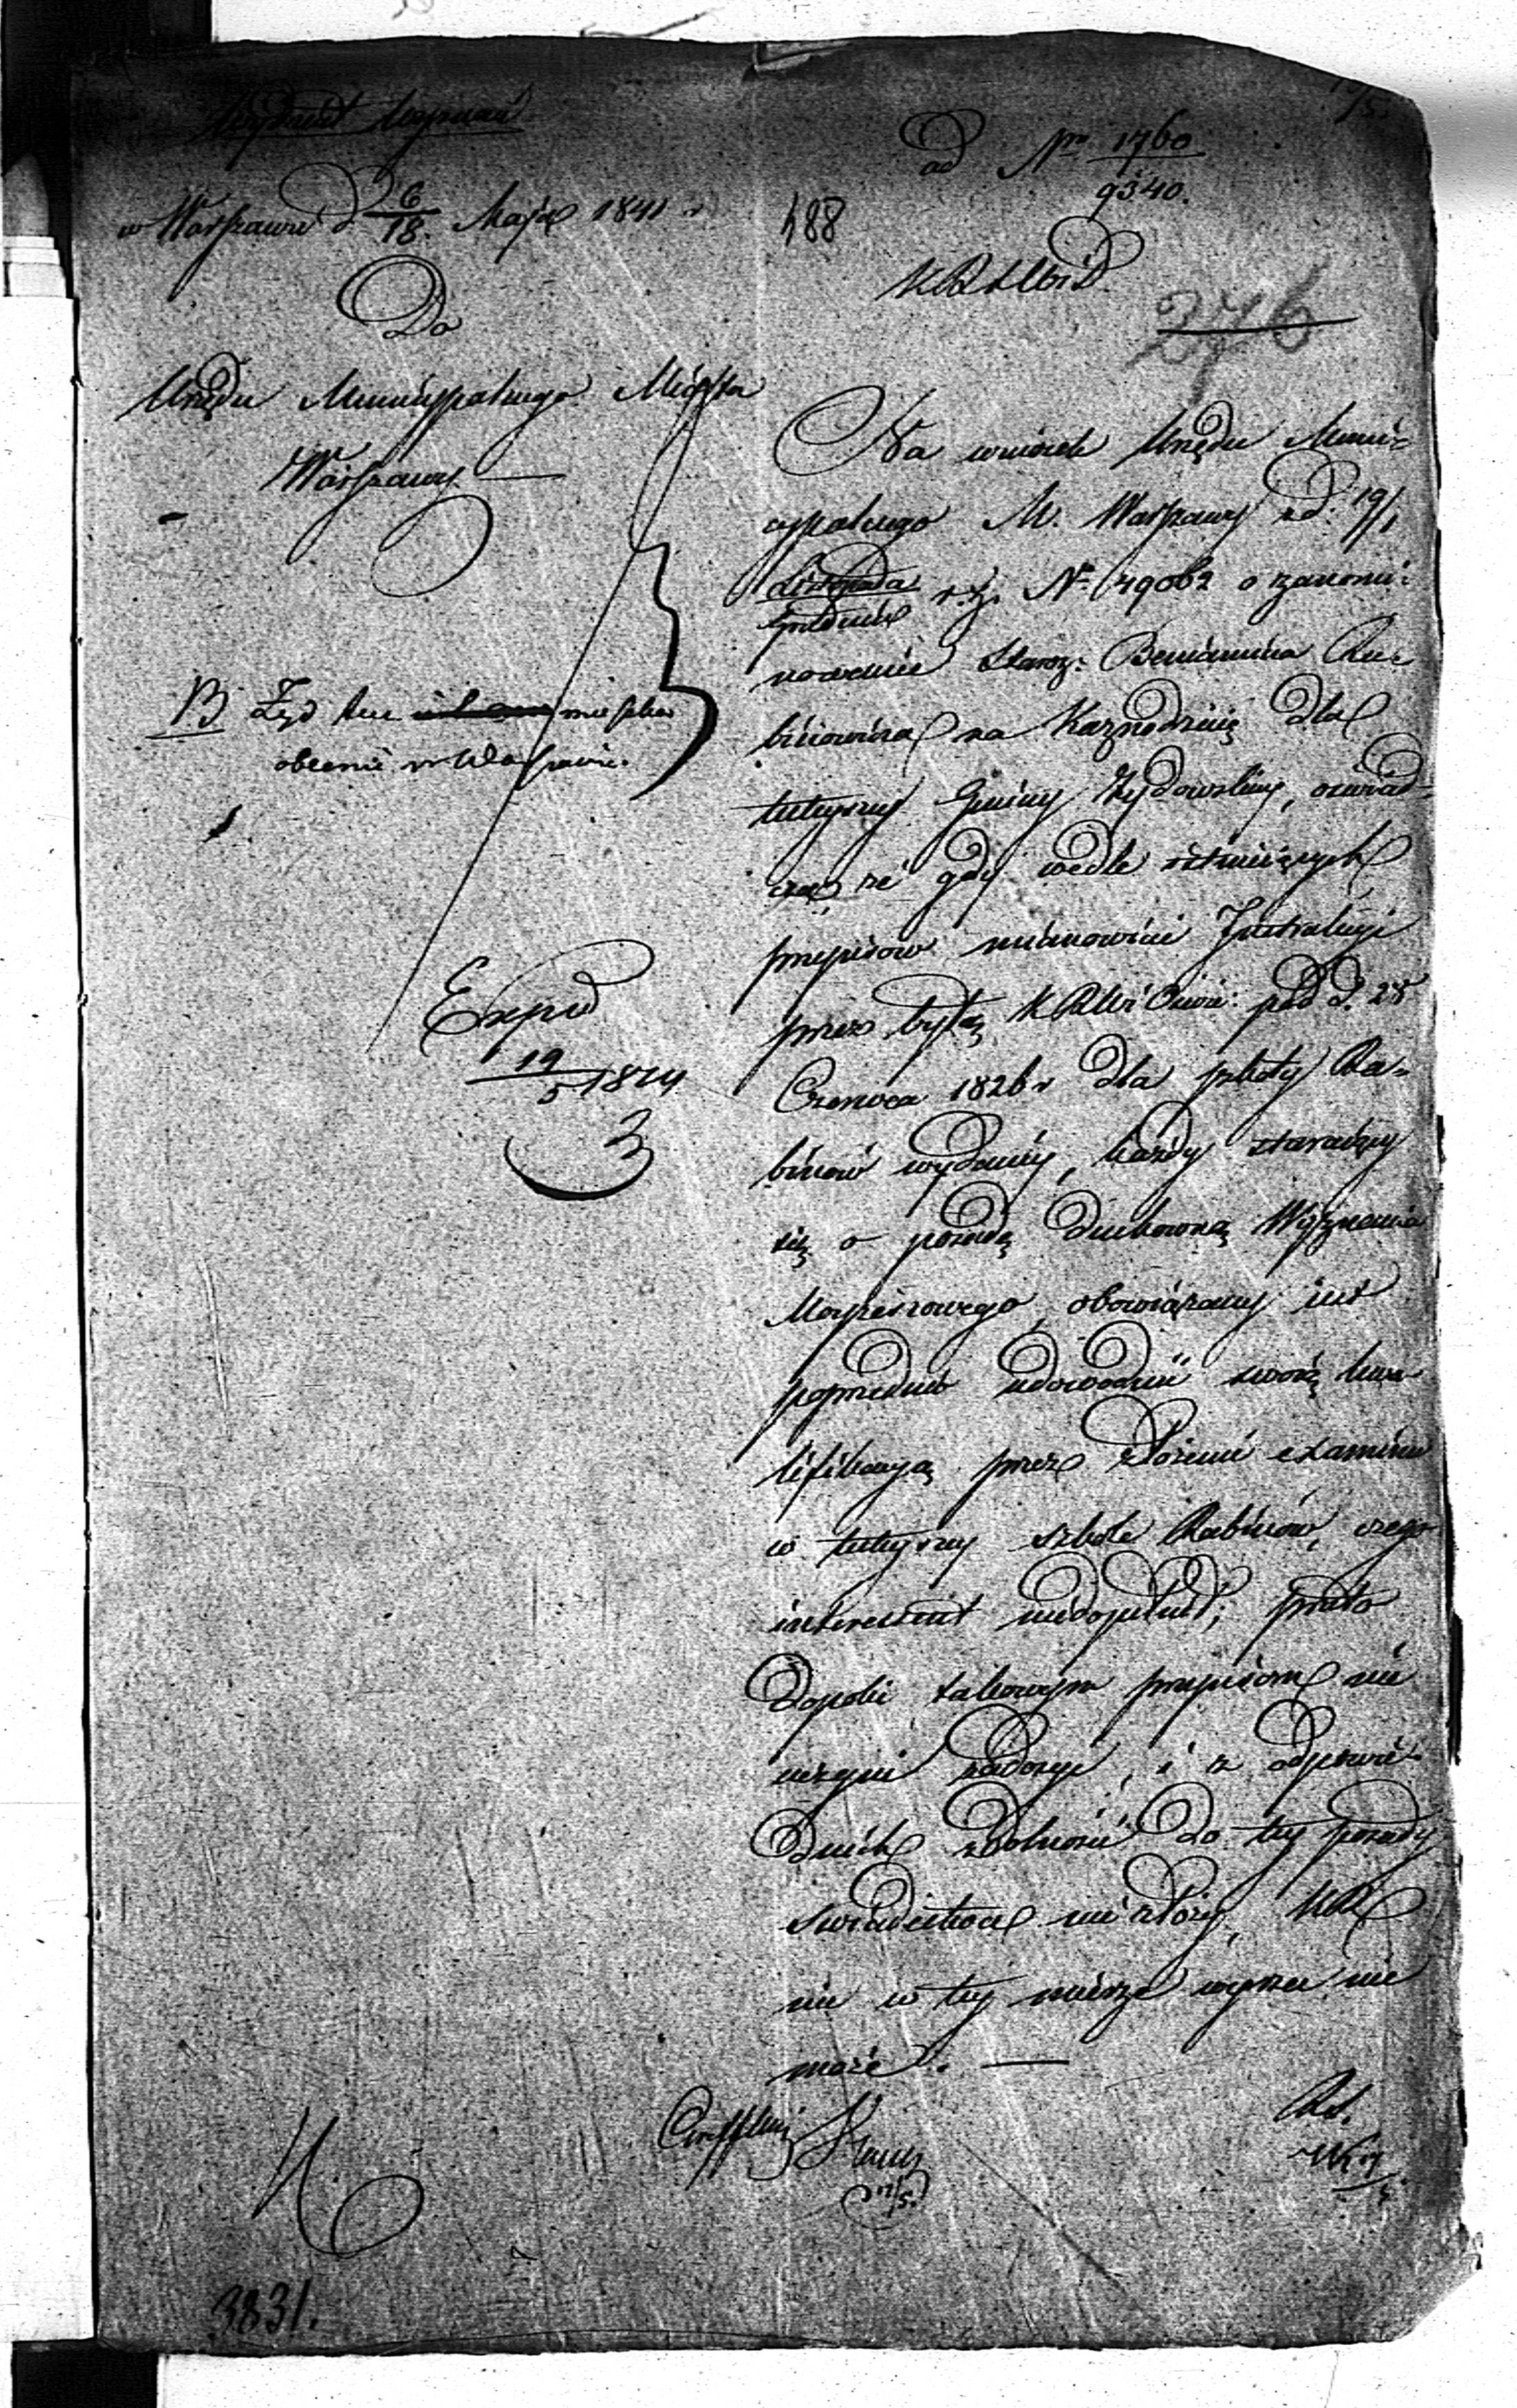 Wydział Wyznań
w Warszawie d 6/18. Maja 1841 r
Do
Urzędu Municypalnego Miasta
Warszawy
B Żyd ten mieszka
obecnie w Warszawie.
Expd
19/5 1841
ad Nro 1760/9340.
488
KRSWiD.
276
Na wniosek Urzędu Muni-
cypalnego M. Warszawy z d. 19/1
Listopada/Grudnia r. z. No 49062 o zanomi-
nowanie Staroz: Beniamina Ru-
binowicza na Kaznodzieię dla
tuteyszey Gminy Żydowskiey, oświad-
cza, że gdy wedle istnieiących
przepisów mianowicie Instrukcyi
przez byłą KRWi Oświe: pod d. 28
Czerwca 1826 r dla szkoły Ra-
binów wydaney, każdy staraiący
się o posadę duchowną Wyznania
Moyżeszowego, obowiązany iest
poprzednio udowodnić swoię kwa-
lifikacyą przez złożenie examinu
w tuteyszey szkole Rabinów, czego
interessent niedopełnił, przeto
dopóki takowym przepisom nie
uczyni zadosyć, i z odpowie-
dnich zdolności do tey posady
świadectwa nie złoży, KR
nic w tey mierze wyrzec nie
może. —
17/5.
3831.